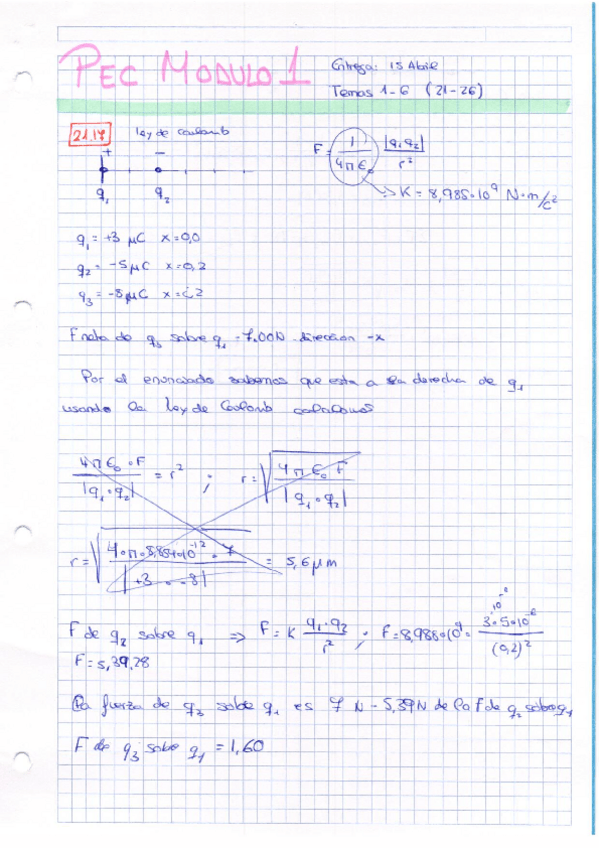 PEC MODULO 1
Entrega: 15 Abril
Temas 1-6 (21-26)
21.17 ley de Coulomb
F = 1/4πε₀ |q₁q₂|/r²
+ −
q₁ q₂
K = 8,985·10⁹ N·m/c²
q₁ = +3 μC x=0,0
q₂ = -5 μC x=0,2
q₃ = -8 μC x=¿?
F neta de q₃ sobre q₁ = 7.00N direccion -x
Por el enunciado sabemos que esta a la derecha de q₁
usando la ley de Coulomb
4πε₀·F/|q₁·q₂| = r² ; r = √(4πε₀F/|q₁·q₂|)
r = √(4·π·8,854·10⁻¹²·7/|+3·-8|) = 5,6 μm
F de q₂ sobre q₁ ⇒ F = K q₁·q₂/r² ; F = 8,988·10⁹· 3·10⁻⁶·5·10⁻⁶/(0,2)²
F = 5,39,28
La fuerza de q₃ sobre q₁ es 7 N - 5,39N de la F de q₂ sobre q₁
F de q₃ sobre q₁ = 1,60